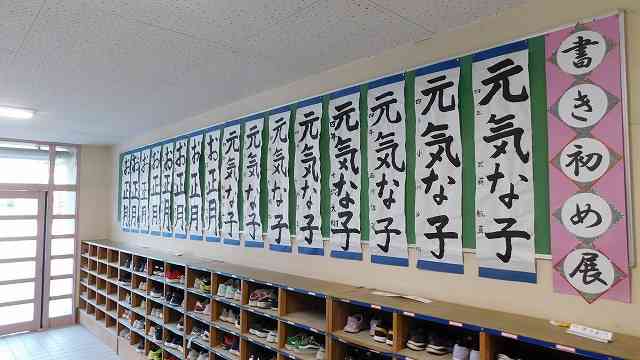 書き初め展
元気な子
元気な子
元気な子
元気な子
元気な子
元気な子
元気な子
元気な子
お正月
お正月
お正月
お正月
お正月
お正月
お正月
お正月